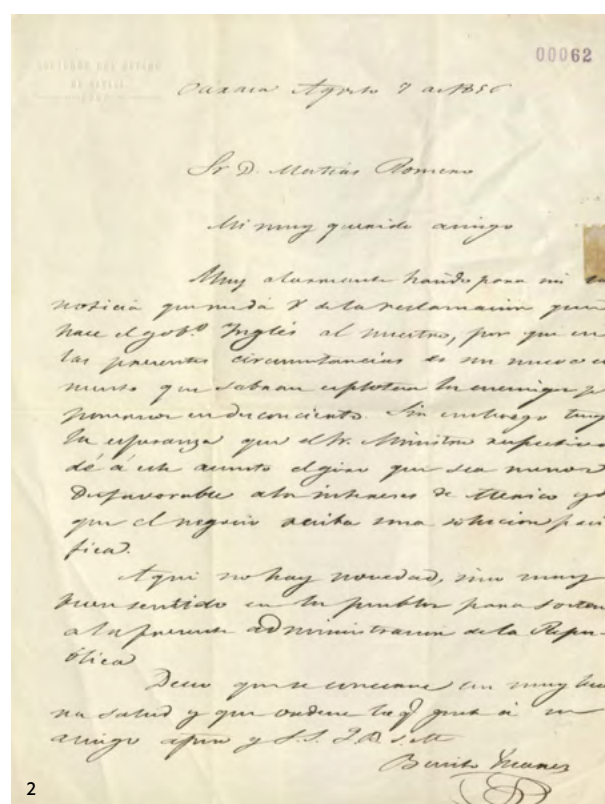 00062
GOBIERNO DEL ESTADO
DE OAXACA
Oaxaca Agosto 7 de 1856
Sr D. Matías Romero
Mi muy querido amigo
Muy alarmante ha sido para mi la
noticia que me dá V de la reclamacion que
hace el gobº Inglés al nuestro, por que en
las presentes circunstancias es un nuevo
que sabran explotar los enemigos pª
ponernos en desconcierto. Sin embargo tengo
la esperanza que el Sr. Ministro respectivo
dé á este asunto el giro que sea menos
desfavorable a los intereses de Mexico y de
que el negocio reciba una solucion paci
fica.
Aqui no hay novedad, sino muy
buen sentido en los pueblos para sosten
a la presente administracion de la Repu-
blica
Deseo que se conserve con muy bue
na salud y que ordene lo q guste á su
amigo afmo y S. S. Q. B. S. M
Benito Juarez
2